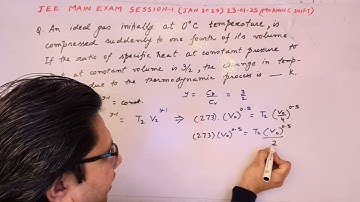 JEE MAIN EXAM SESSION-1 (JAN 2025) 23-01-25
Q. An ideal gas initially at 0°C temperature, is
compressed suddenly to one fourth of its volume.
If the ratio of specific heat at constant pressure to
at constant volume is 3/2, the change in temp-
due to the thermodynamic process is ___ K.
= const. γ = Cp/Cv = 3/2
= T₂ V₂^γ-1 ⇒ (273)·(V₀)^0.5 = T₂ (V₀/4)^0.5
(273)(V₀)^0.5 = T₂ (V₀)^0.5/2